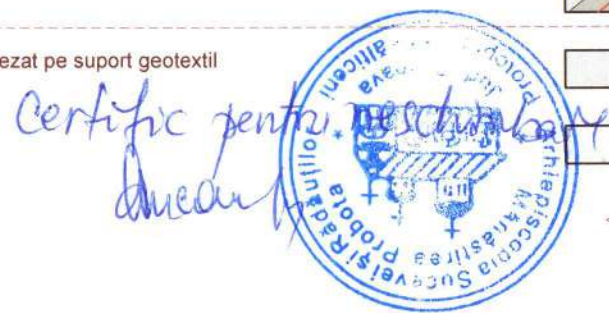 ezat pe suport geotextil
Certific pentru neschimbare
Arhiepiscopia Sucevei și Rădăuților
Protop Fălticeni
Mănăstirea Probota